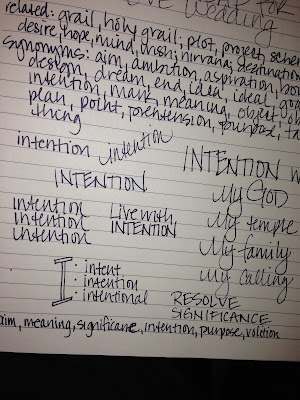 FOR
related: grail, holy grail; plot, project,
desire, hope, mind, wish; nirvana; destination
synonyms: aim, ambition, aspiration,
design, dream, end, idea, ideal,
intention, mark, meaning, object,
plan, point, pretension, purpose,
thing
intention intention
INTENTION
intention
intention
intention
Live with
INTENTION
INTENTION W
My GOD
My temple
My family
My calling
I : intent
: intention
: intentional
RESOLVE
SIGNIFICANCE
aim, meaning, significance, intention, purpose, volition